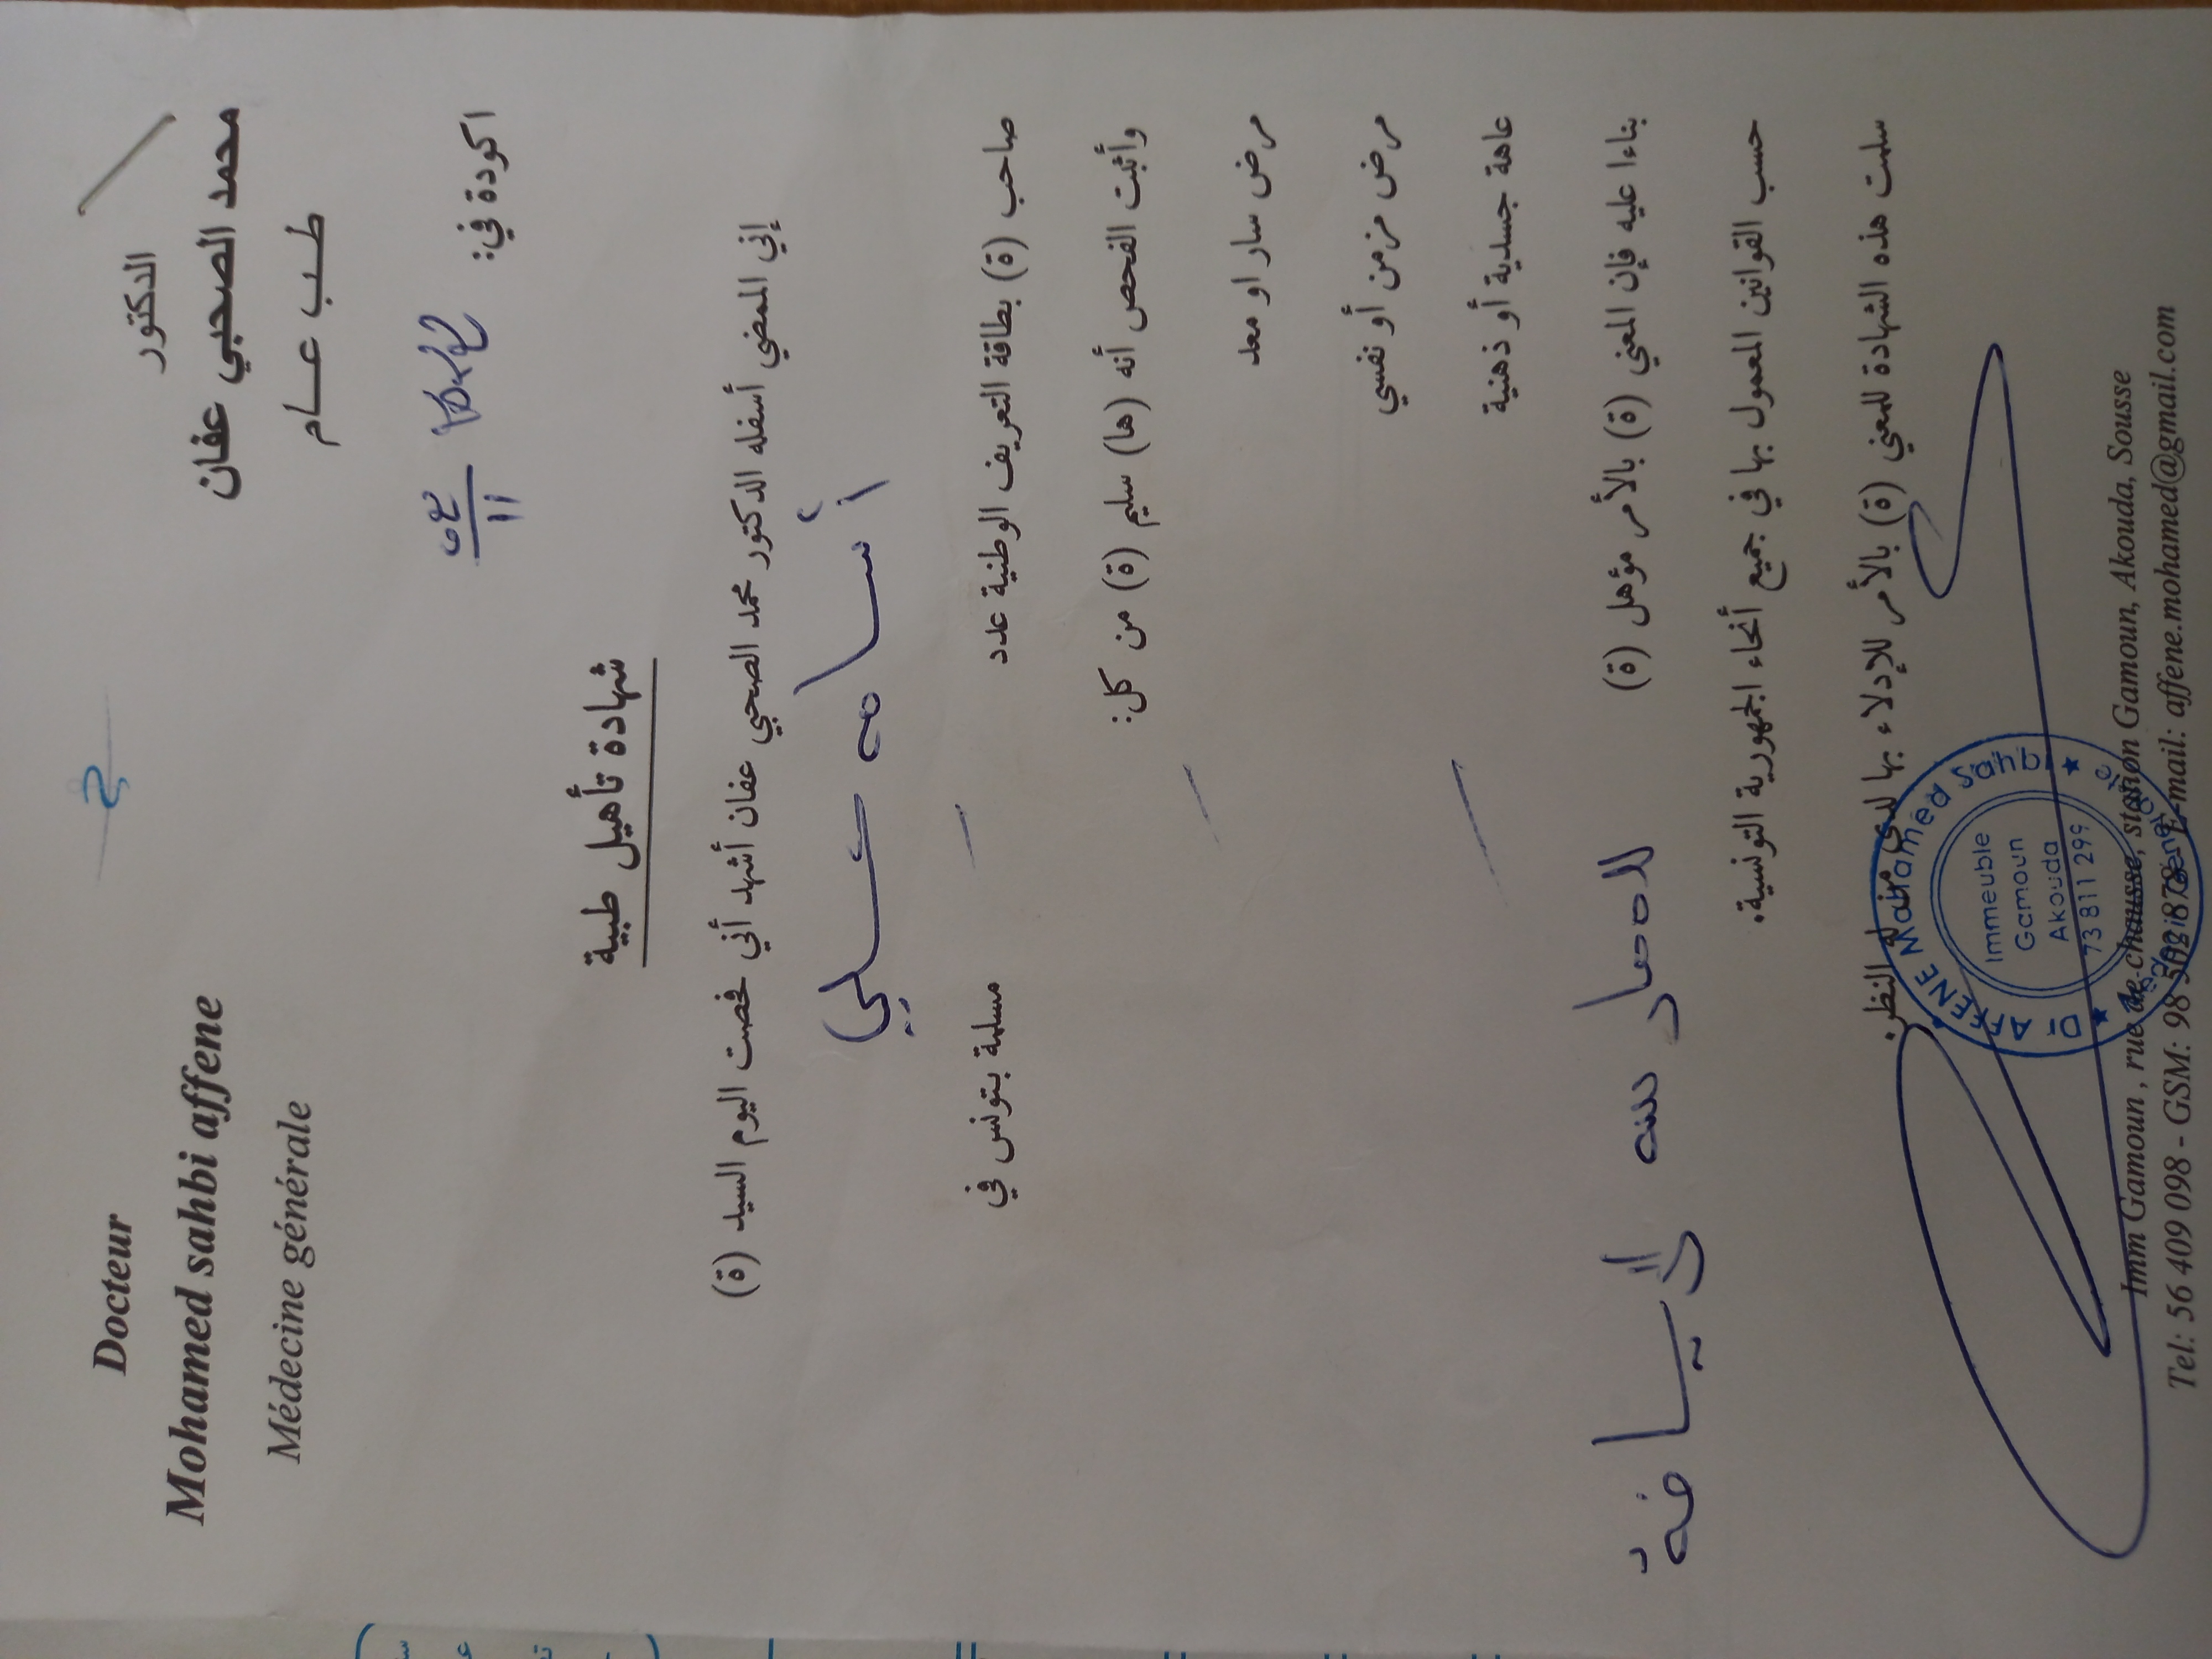 Docteur
Mohamed sahbi affene
Médecine générale
الدكتور
محمد الصحبي عفان
طب عام
اكودة في:
شهادة تأهيل طبية
إني الممضي أسفله الدكتور محمد الصحبي عفان أشهد أني فحصت اليوم السيد (ة)
أسامه
صاحب (ة) بطاقة التعريف الوطنية عدد مسلمة بتونس في
وأثبت الفحص أنه (ها) سليم (ة) من كل:
مرض سار او معد
مرض مزمن أو نفسي
عاهة جسدية أو ذهنية
بناءا عليه فإن المعني (ة) بالأمر مؤهل (ة) لل الرياضة
حسب القوانين المعمول بها في جميع أنحاء الجمهورية التونسية.
سلمت هذه الشهادة للمعني (ة) بالأمر للإدلاء بها لدى من له النظر.
Dr AFFENE Mohamed Sahbi
Immeuble
Gamoun
Akouda
73 811 299
Imm Gamoun, rue de chausse, station Gamoun, Akouda, Sousse
Tel: 56 409 098 - GSM: 98 E-mail: affene.mohamed@gmail.com